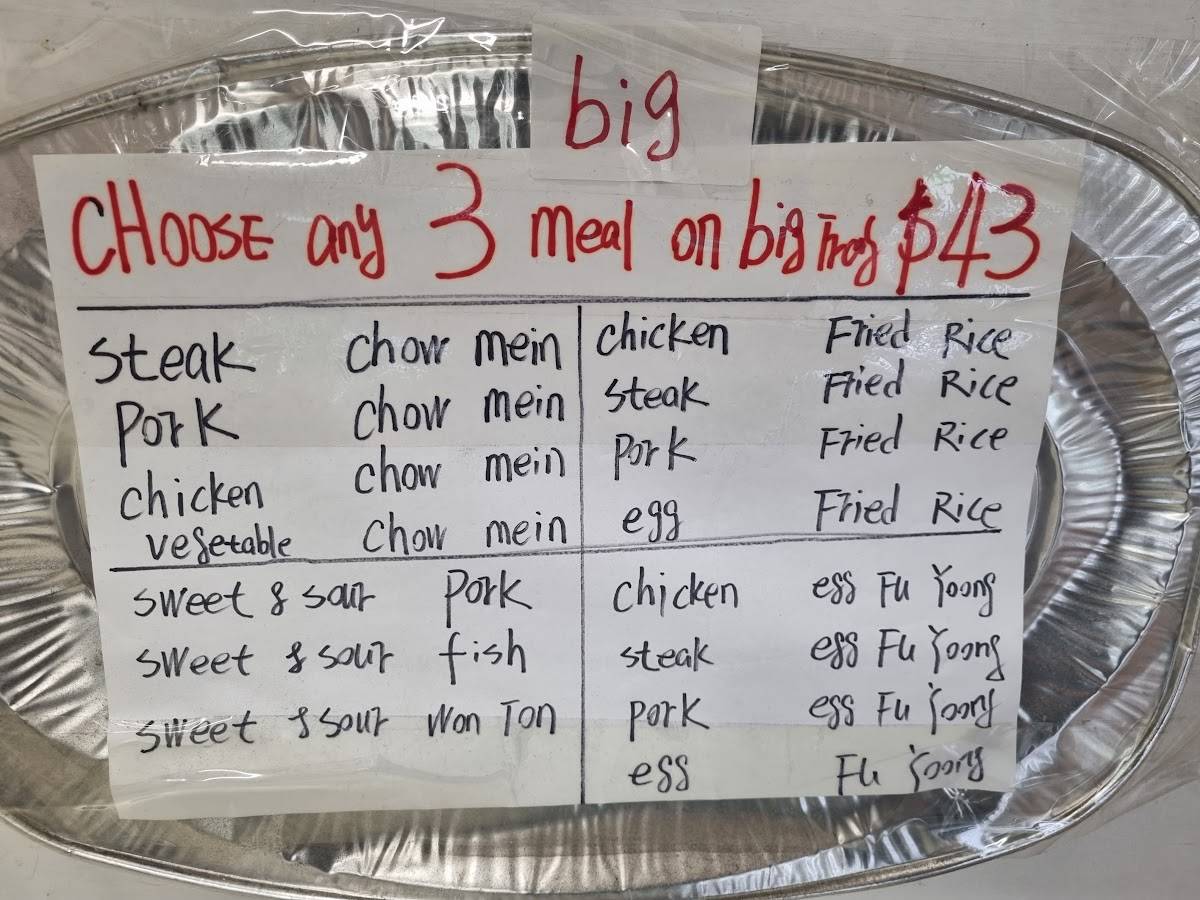 big
CHOOSE any 3 meal on big Tray $43
steak chow mein
Pork chow mein
chicken chow mein
vegetable chow mein
chicken Fried Rice
steak Fried Rice
Pork Fried Rice
egg Fried Rice
sweet & sour Pork
sweet & sour fish
sweet & sour Won Ton
chicken egg Fu Yoong
steak egg Fu Yoong
Pork egg Fu Yoong
egg Fu Yoong